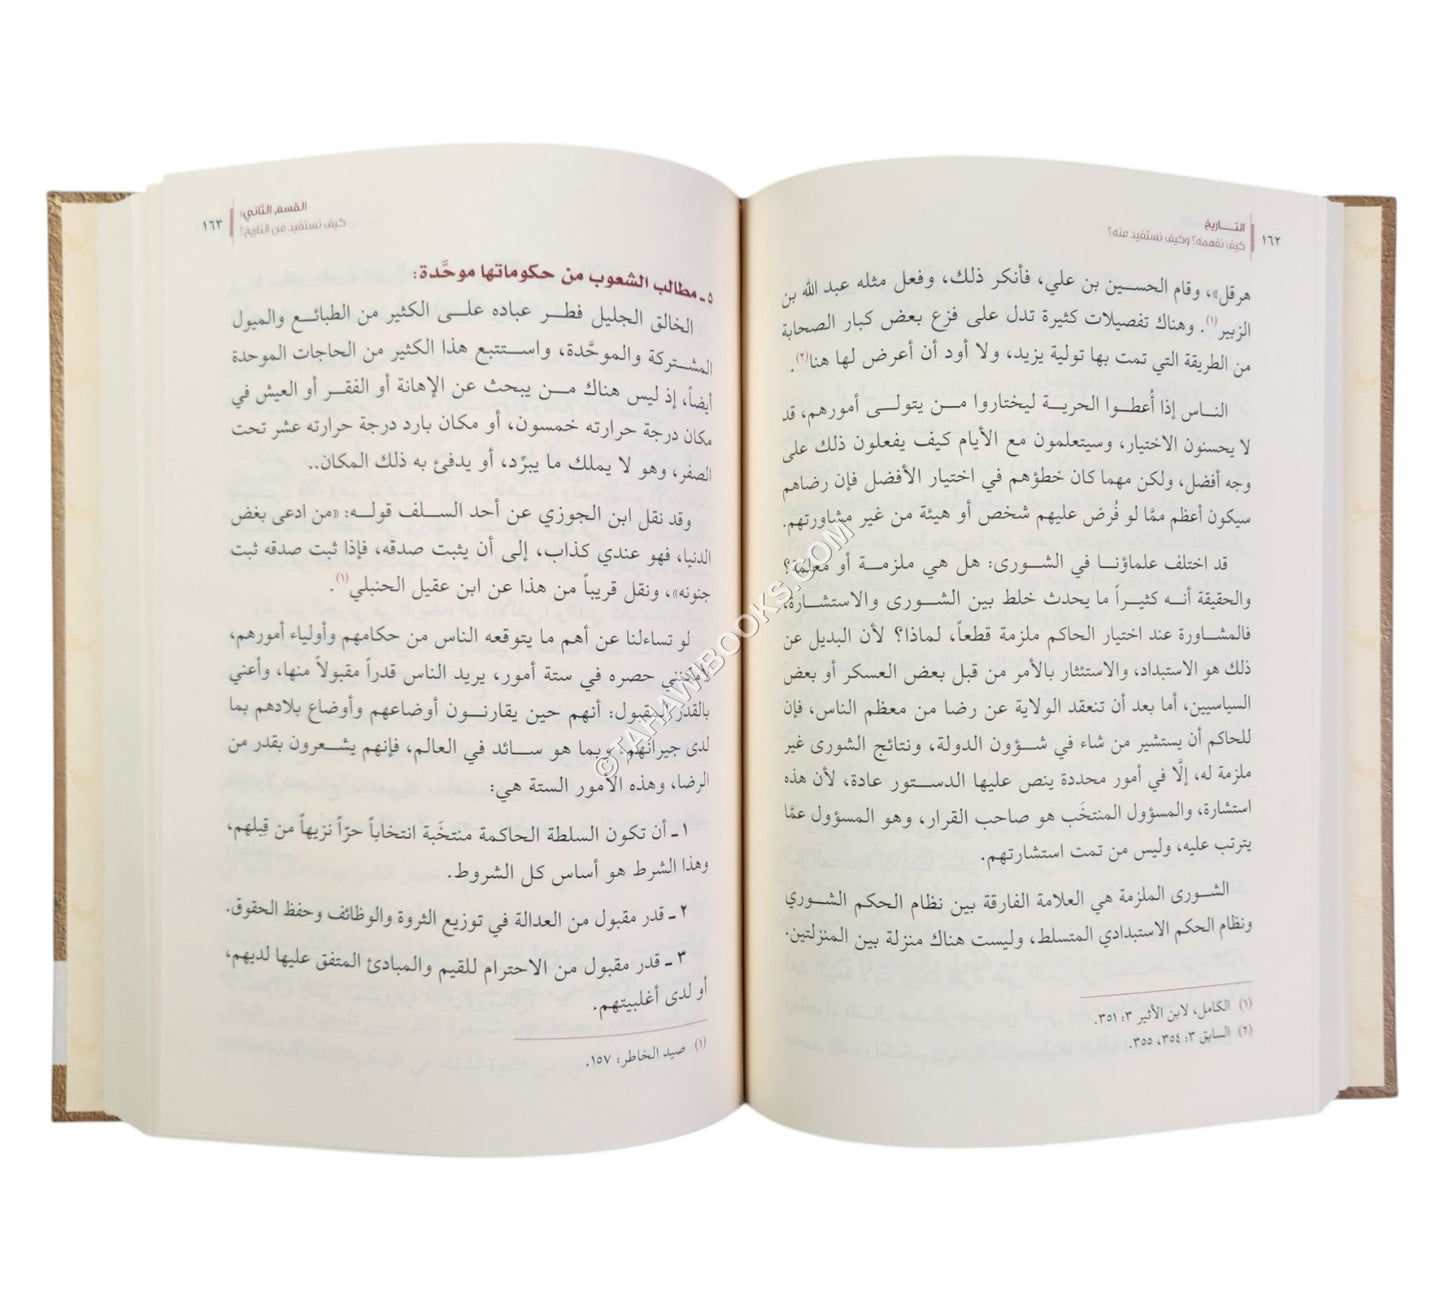 ١٦٢
التـــاريخ
كيف نفهمه؟ وكيف نستفيد منه؟
هرقل»، وقام الحسـين بن علي، فأنكر ذلك، وفعل مثله عبد الله بن
الزبير(١). وهناك تفصيلات كثيرة تدل على فزع بعض كبار الصحابة
من الطريقة التي تمت بها تولية يزيد، ولا أود أن أعرض لها هنا(٢).
النـاس إذا أُعطـوا الحرية ليختاروا مـن يتولـى أمورهم، قد
لا يحسنون الاختيار، وسيتعلمون مع الأيام كيف يفعلون ذلك على
وجه أفضل، ولكن مهما كان خطؤهم في اختيار الأفضل فإن رضاهم
سيكون أعظم ممَّا لو فُرض عليهم شخص أو هيئة من غير مشاورتهم.
قد اختلف علماؤنـا في الشـورى: هل هي ملزمـة أو معلمة؟
والحقيقة أنـه كثيـراً ما يحدث خلط بين الشـورى والاستشـارة،
فالمشـاورة عند اختيار الحاكم ملزمة قطعاً، لماذا؟ لأن البديل عن
ذلك هو الاستبداد، والاستئثار بالأمر من قبل بعض العسكر أو بعض
السياسيين، أما بعد أن تنعقد الولاية عن رضا من معظم الناس، فإن
للحاكم أن يستشير من شاء في شـؤون الدولة، ونتائج الشورى غير
ملزمة له، إلَّا في أمور محددة ينص عليها الدسـتور عادة، لأن هذه
استشارة، والمسؤول المنتخَب هو صاحب القرار، وهو المسؤول عمَّا
يترتب عليه، وليس من تمت استشارتهم.
الشـورى الملزمة هي العلامة الفارقة بين نظام الحكم الشـوري
ونظام الحكم الاستبدادي المتسلط، وليست هناك منزلة بين المنزلتين.
(١) الكامل، لابن الأثير ٣: ٣٥١.
(٢) السابق ٣: ٣٥٤، ٣٥٥.
القسم الثاني:
كيف نستفيد من التاريخ؟
١٦٣
٥ ـ مطالب الشعوب من حكوماتها موحَّدة:
الخالق الجليل فطـر عباده علـى الكثير من الطبائـع والميول
المشـتركة والموحَّدة، واسـتتبع هذا الكثير من الحاجات الموحدة
أيضاً، إذ ليس هناك مـن يبحث عن الإهانة أو الفقر أو العيش في
مكان درجة حرارته خمسون، أو مكان بارد درجة حرارته عشر تحت
الصفر، وهو لا يملك ما يبرِّد، أو يدفئ به ذلك المكان..
وقد نقل ابن الجوزي عن أحد السـلف قولـه: «من ادعى بغض
الدنيا، فهو عندي كذاب، إلى أن يثبت صدقه، فإذا ثبت صدقه ثبت
جنونه»، ونقل قريباً من هذا عن ابن عقيل الحنبلي(١).
لو تساءلنا عن أهم ما يتوقعه الناس من حكامهم وأولياء أمورهم،
لأمكنني حصره في ستة أمور، يريد الناس قدراً مقبولاً منها، وأعني
بالقدر المقبول: أنهم حين يقارنـون أوضاعهم وأوضاع بلادهم بما
لدى جيرانهم، وبما هو سـائد في العالم، فإنهم يشـعرون بقدر من
الرضا، وهذه الأمور الستة هي:
١ ـ أن تكون السلطة الحاكمة منتخَبة انتخاباً حرّاً نزيهاً من قِبلهم،
وهذا الشرط هو أساس كل الشروط.
٢ ـ قدر مقبول من العدالة في توزيع الثروة والوظائف وحفظ الحقوق.
٣ ـ قدر مقبول من الاحترام للقيم والمبادئ المتفق عليها لديهم،
أو لدى أغلبيتهم.
(١) صيد الخاطر: ١٥٧.
© TAHAWIBOOKS.COM